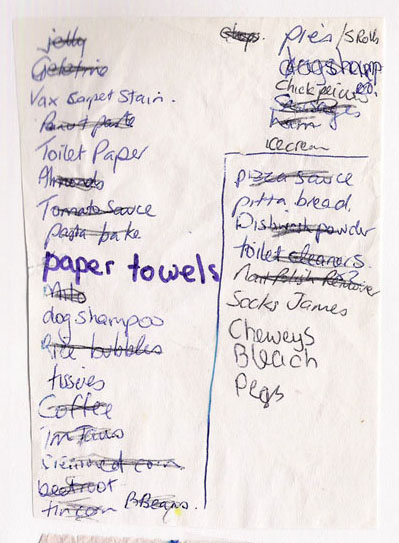 jelly
Gelatine
Vax Carpet Stain.
Peanut paste
Toilet Paper
Almonds
Tomato Sauce
pasta bake
paper towels
Milo
dog shampoo
Rice bubbles
tissues
Coffee
creamed corn
beetroot
tin corn BBeans.
chips. pies/SRolls
dog shamp
Chick peices
Sausages
ham
icecream
pizza sauce
pitta bread.
Dishwash powder
toilet cleaners.
Nail Polish Remover
Socks James
Cheweys
Bleach
Pegs